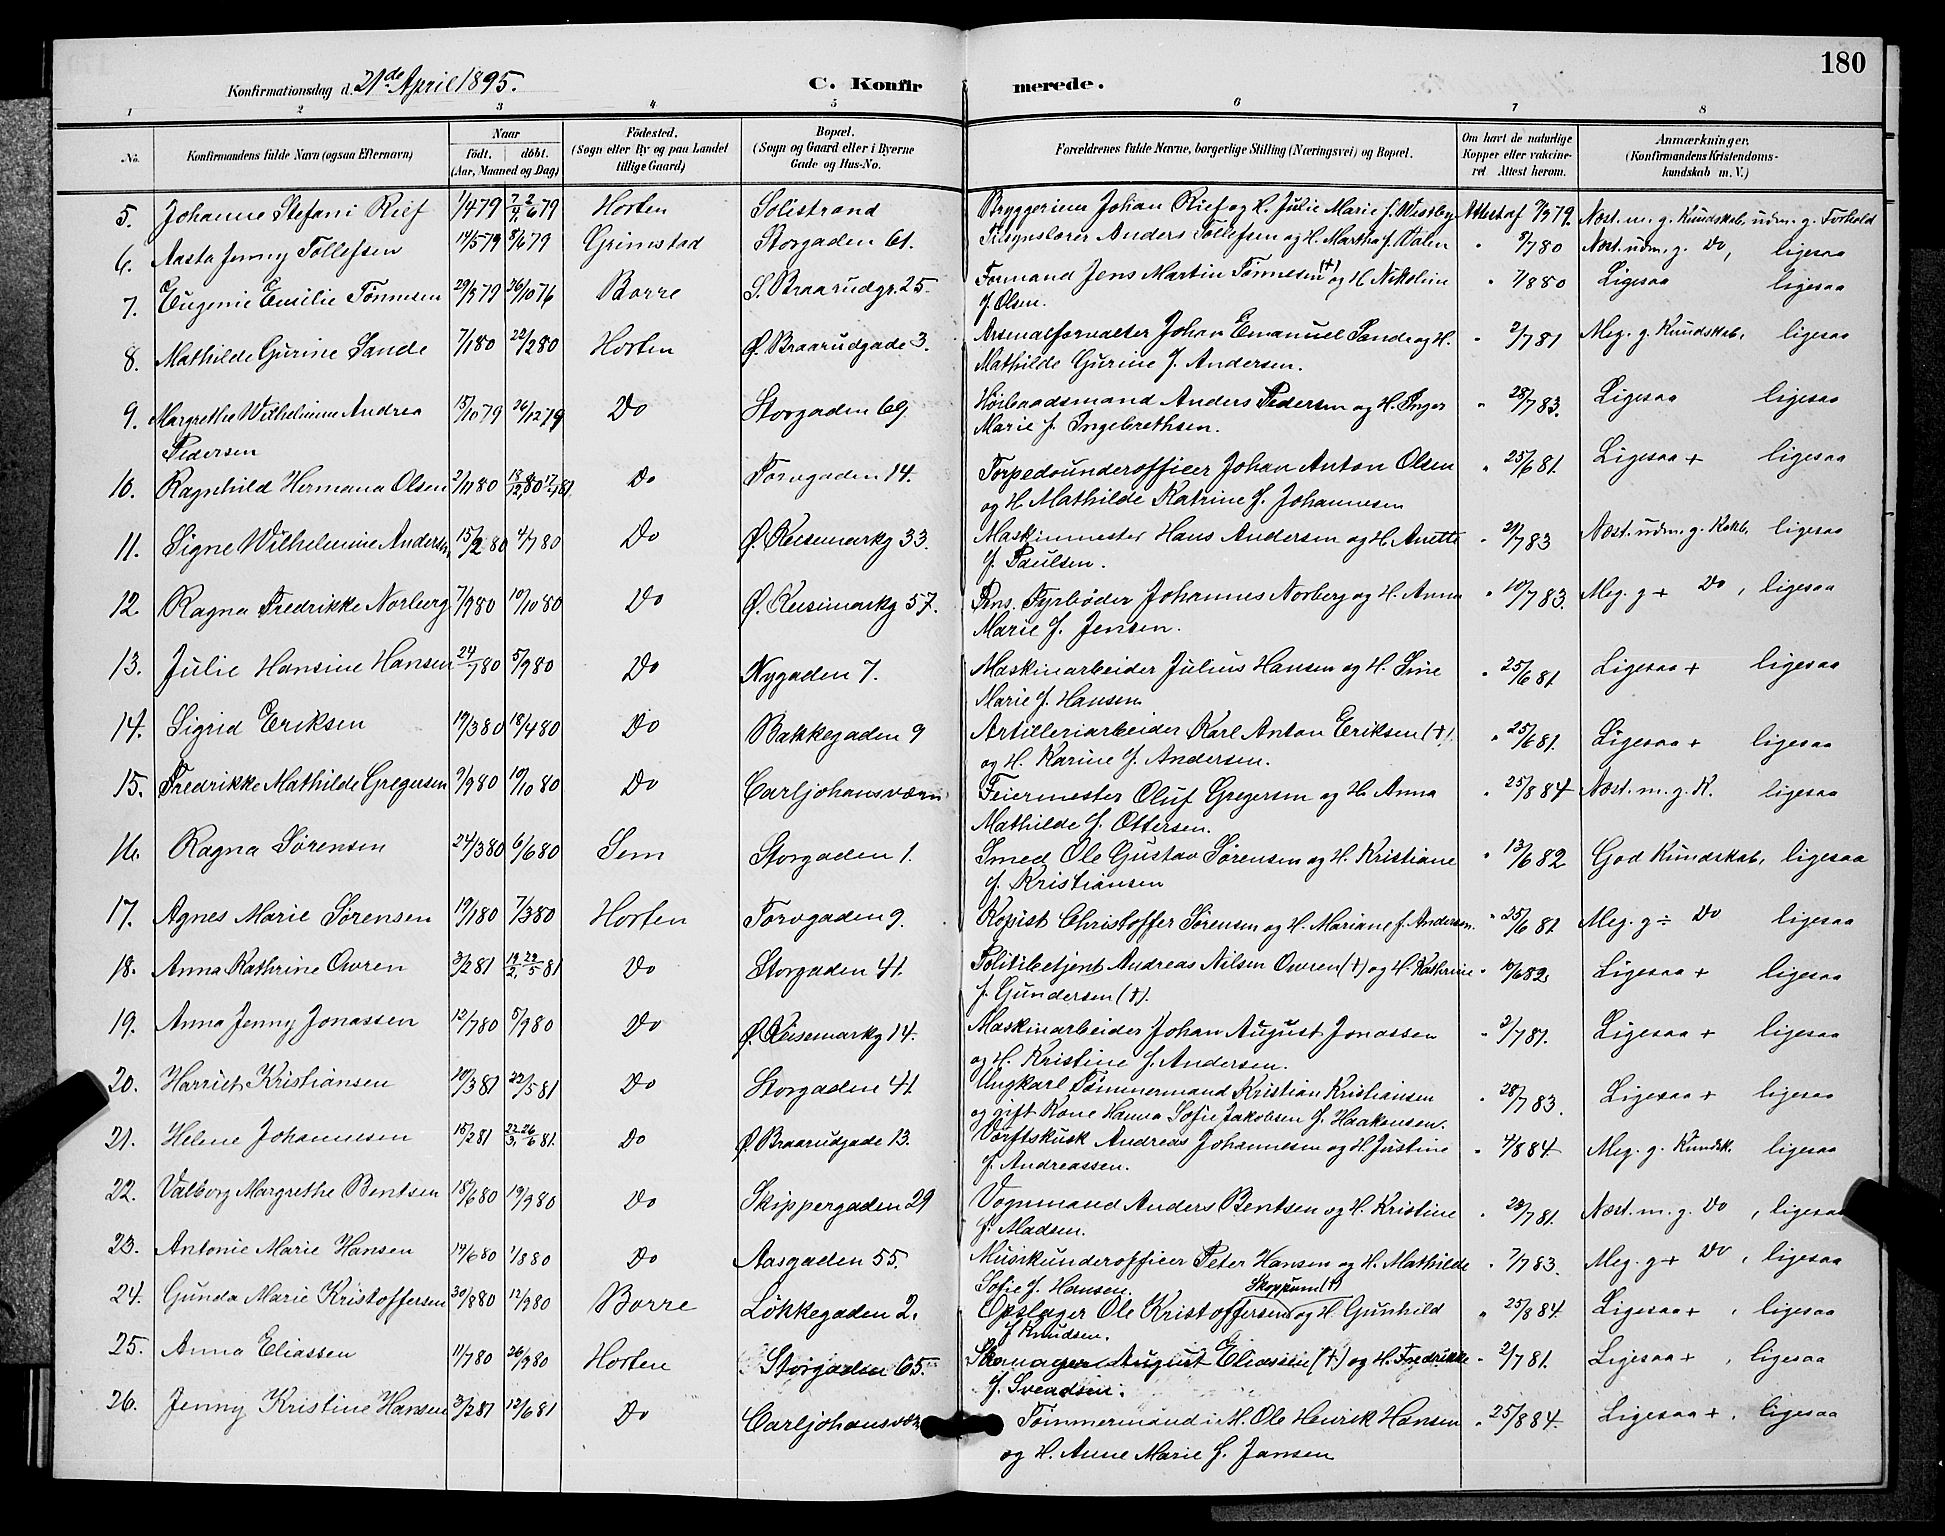 180
Konfirmationsdag d. 21de April 1895.
C. Konfirmerede.
1 2 3 4 5 6 7 8
No. Konfirmandens fulde Navn (ogsaa Efternavn) Naar født. døbt. (Aar, Maaned og Dag) Fødested. (Sogn eller By og paa Landet tillige Gaard) Bopæl. (Sogn og Gaard eller i Byerne Gade og Hus-No. Forældrenes fulde Navne, borgerlige Stilling (Næringsvei) og Bopæl. Om havt de naturlige Kopper eller vakcineret Attest herom. Anmærkninger. (Konfirmandens Kristendomskundskab m. V.)
5. Johanne Stefani Rief 1/4 79 Horten Solistrand Bryggerieier Johan Rief og H. Julie Marie f. Westby Attest af 7/9 79. Næst. m. g. Kundskab, udm. g. Forhold
6. Aasta Jenny Tollefsen 14/5 79 8/6 79 Grimstad Storgaden 61. Tilsynslærer Anders Tollefsen og H. Martha f. Dalen " 8/7 80 Næst. udm. g. Do, ligesaa
7. Eugenie Emilie Tønnesen 29/3 79 26/10 76 Borre S. Braarudgt. 25. Formand Jens Martin Tønnesen (†) og H. Nikoline
f. Olsen. " 7/8 80 Ligesaa ligesaa
8. Mathilde Gurine Sande 7/1 80 22/2 80 Horten Ø. Braarudgade 3. Arsenalforvalter Johan Emanuel Sande og H.
Mathilde Gurine f. Andersen. " 2/7 81 Meg. g. Kundskab, ligesaa
9. Margrethe Wilhelmine Andrea 15/10 79 26/12 79 Do Storgaden 69. Høibaadsmand Anders Pedersen og H. Inger
Pedersen Marie f. Ingebrethsen. " 28/7 83. Ligesaa ligesaa
10. Ragnhild Hermana Olsen 2/11 80 Do Torvgaden 14. Torpedounderofficer Johan Anton Olsen
og H. Mathilde Katrine f. Johannesen " 25/6 81. Ligesaa + ligesaa
11. Signe Wilhelmine Andersen 15/2 80 4/7 80 Do Ø. Keisemarkg 33. Maskinmester Hans Andersen og H. Anette
f. Paulsen. " 21/7 83 Næst. udm. g. Kskb. ligesaa
12. Ragna Fredrikke Norberg 7/9 80 10/10 80 Do Ø. Keisemarkg 57. Pens. Fyrbøder Johannes Norberg og H. Anna
Marie f. Jensen. " 10/7 83. Meg. g + Do, ligesaa
13. Julie Hansine Hansen 24/7 80 5/9 80 Do Nygaden 7. Maskinarbeider Julius Hansen og H. Sine
Marie f. Hansen " 25/6 81. Ligesaa + ligesaa
14. Sigrid Eriksen 19/3 80 18/4 80 Do Bakkegaden 9 Artilleriarbeider Karl Anton Eriksen (†).
og H. Karine f. Andersen. " 25/6 81. Ligesaa + ligesaa
15. Fredrikke Mathilde Gregersen 9/9 80 10/10 80 Do Carljohansværn Feiermester Oluf Gregersen og H. Anna
Mathilde f. Ottersen. " 25/8 84 Næst. m. g. K. ligesaa
16. Ragna Sørensen 24/3 80 6/6 80 Sem Storgaden 1. Smed Ole Gustav Sørensen og H. Kristiane
f. Kristiansen " 13/6 82 God Kundskab, ligesaa
17. Agnes Marie Sørensen 19/1 80 7/3 80 Horten Torvgaden 9. Kopist Christoffer Sørensen og H. Mariane f. Andersen. " 25/6 81. Meg. g ÷ Do ligesaa
18. Anna Kathrine Owren 3/2 81 Do Storgaden 41. Politibetjent Andreas Nilsen Owren (†) og H. Kathrine
f. Gundersen (†). " 10/6 82. Ligesaa + ligesaa
19. Anna Jenny Jonassen 12/7 80 5/9 80 Do Ø. Keisemarkg 14. Maskinarbeider Johan August Jonassen
og H. Kristine f. Andersen. " 2/7 81. Ligesaa + ligesaa
20. Harriet Kristiansen 10/3 81 22/5 81 Do Storgaden 41 Ungkarl Tømmermand Kristian Kristiansen
og gift Kone Hanna Sofie Jakobsen f. Haakensen. " 28/7 83. Ligesaa + ligesaa
21. Helene Johannesen 15/2 81 Do Ø. Braarudgade 13. Værftskusk Andreas Johannesen og H. Justine
f. Andreassen. " 4/8 84. Meg. g. Kundsk. ligesaa
22. Valborg Margrethe Bentsen 18/6 80 19/9 80 Do Skippergaden 29 Vognmand Anders Bentsen og H. Kristine
f. Madsen. " 28/7 81. Næst. m. g. Do, ligesaa
23. Antonie Marie Hansen 14/6 80 1/8 80 Do Aasgaden 55. Musikunderofficer Peter Hansen og H. Mathilde
Sofie f. Hansen. " 7/7 83. Meg. g + Do, ligesaa
24. Gunda Marie Kristoffersen 30/8 80 12/9 80 Borre Løkkegaden 2. Opslager Ole Kristoffersen Skoppum (†) og H. Gunhild
f. Knudsen. " 25/8 84. Ligesaa +, ligesaa
25. Anna Eliassen 11/7 80 26/9 80 Horten Storgaden 65. Skomager August Eliassen (†) og H. Fredrikke
f. Svendsen. " 2/7 81. Ligesaa +, ligesaa
26. Jenny Kristine Hansen 3/2 81 12/6 81 Do Carljohansvær Tømmermand i M. Ole Henrik Hansen
og H. Anne Marie f. Jansen " 25/8 84. Ligesaa +, ligesaa